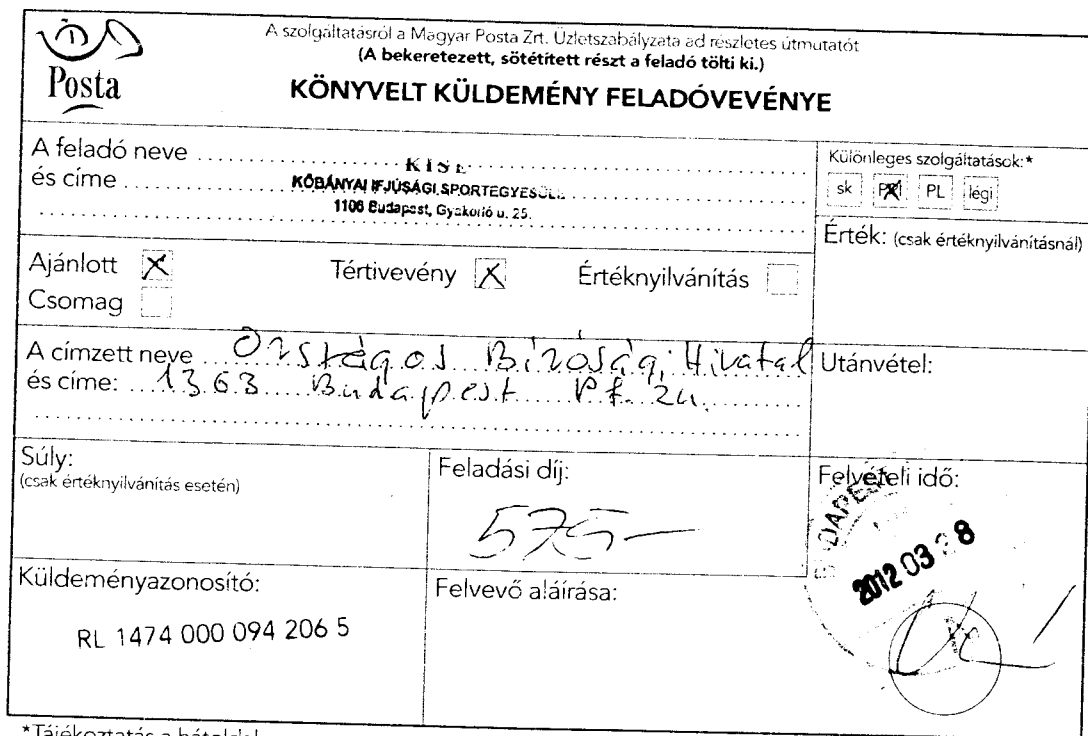 Posta
A szolgáltatásról a Magyar Posta Zrt. Üzletszabályzata ad részletes útmutatót
(A bekeretezett, sötétített részt a feladó tölti ki.)
KÖNYVELT KÜLDEMÉNY FELADÓVEVÉNYE
A feladó neve
és címe
KISE
KŐBÁNYAI IFJÚSÁGI SPORTEGYESÜL
1106 Budapest, Gyakorló u. 25.
Különleges szolgáltatások:*
sk PRI PL légi
Érték: (csak értéknyilvánításnál)
Ajánlott X Tértivevény X Értéknyilvánítás
Csomag
A címzett neve Országos Bírósági Hivatal
és címe: 1363 Budapest Pf. 24.
Utánvétel:
Súly:
(csak értéknyilvánítás esetén)
Feladási díj:
575-
Felvételi idő:
BUDAPEST
2012 03 28
Küldeményazonosító:
RL 1474 000 094 206 5
Felvevő aláírása:
*Tájékoztatás a hátoldal